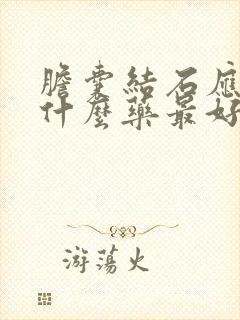 膽囊結石應
什麼藥最好
游蕩火